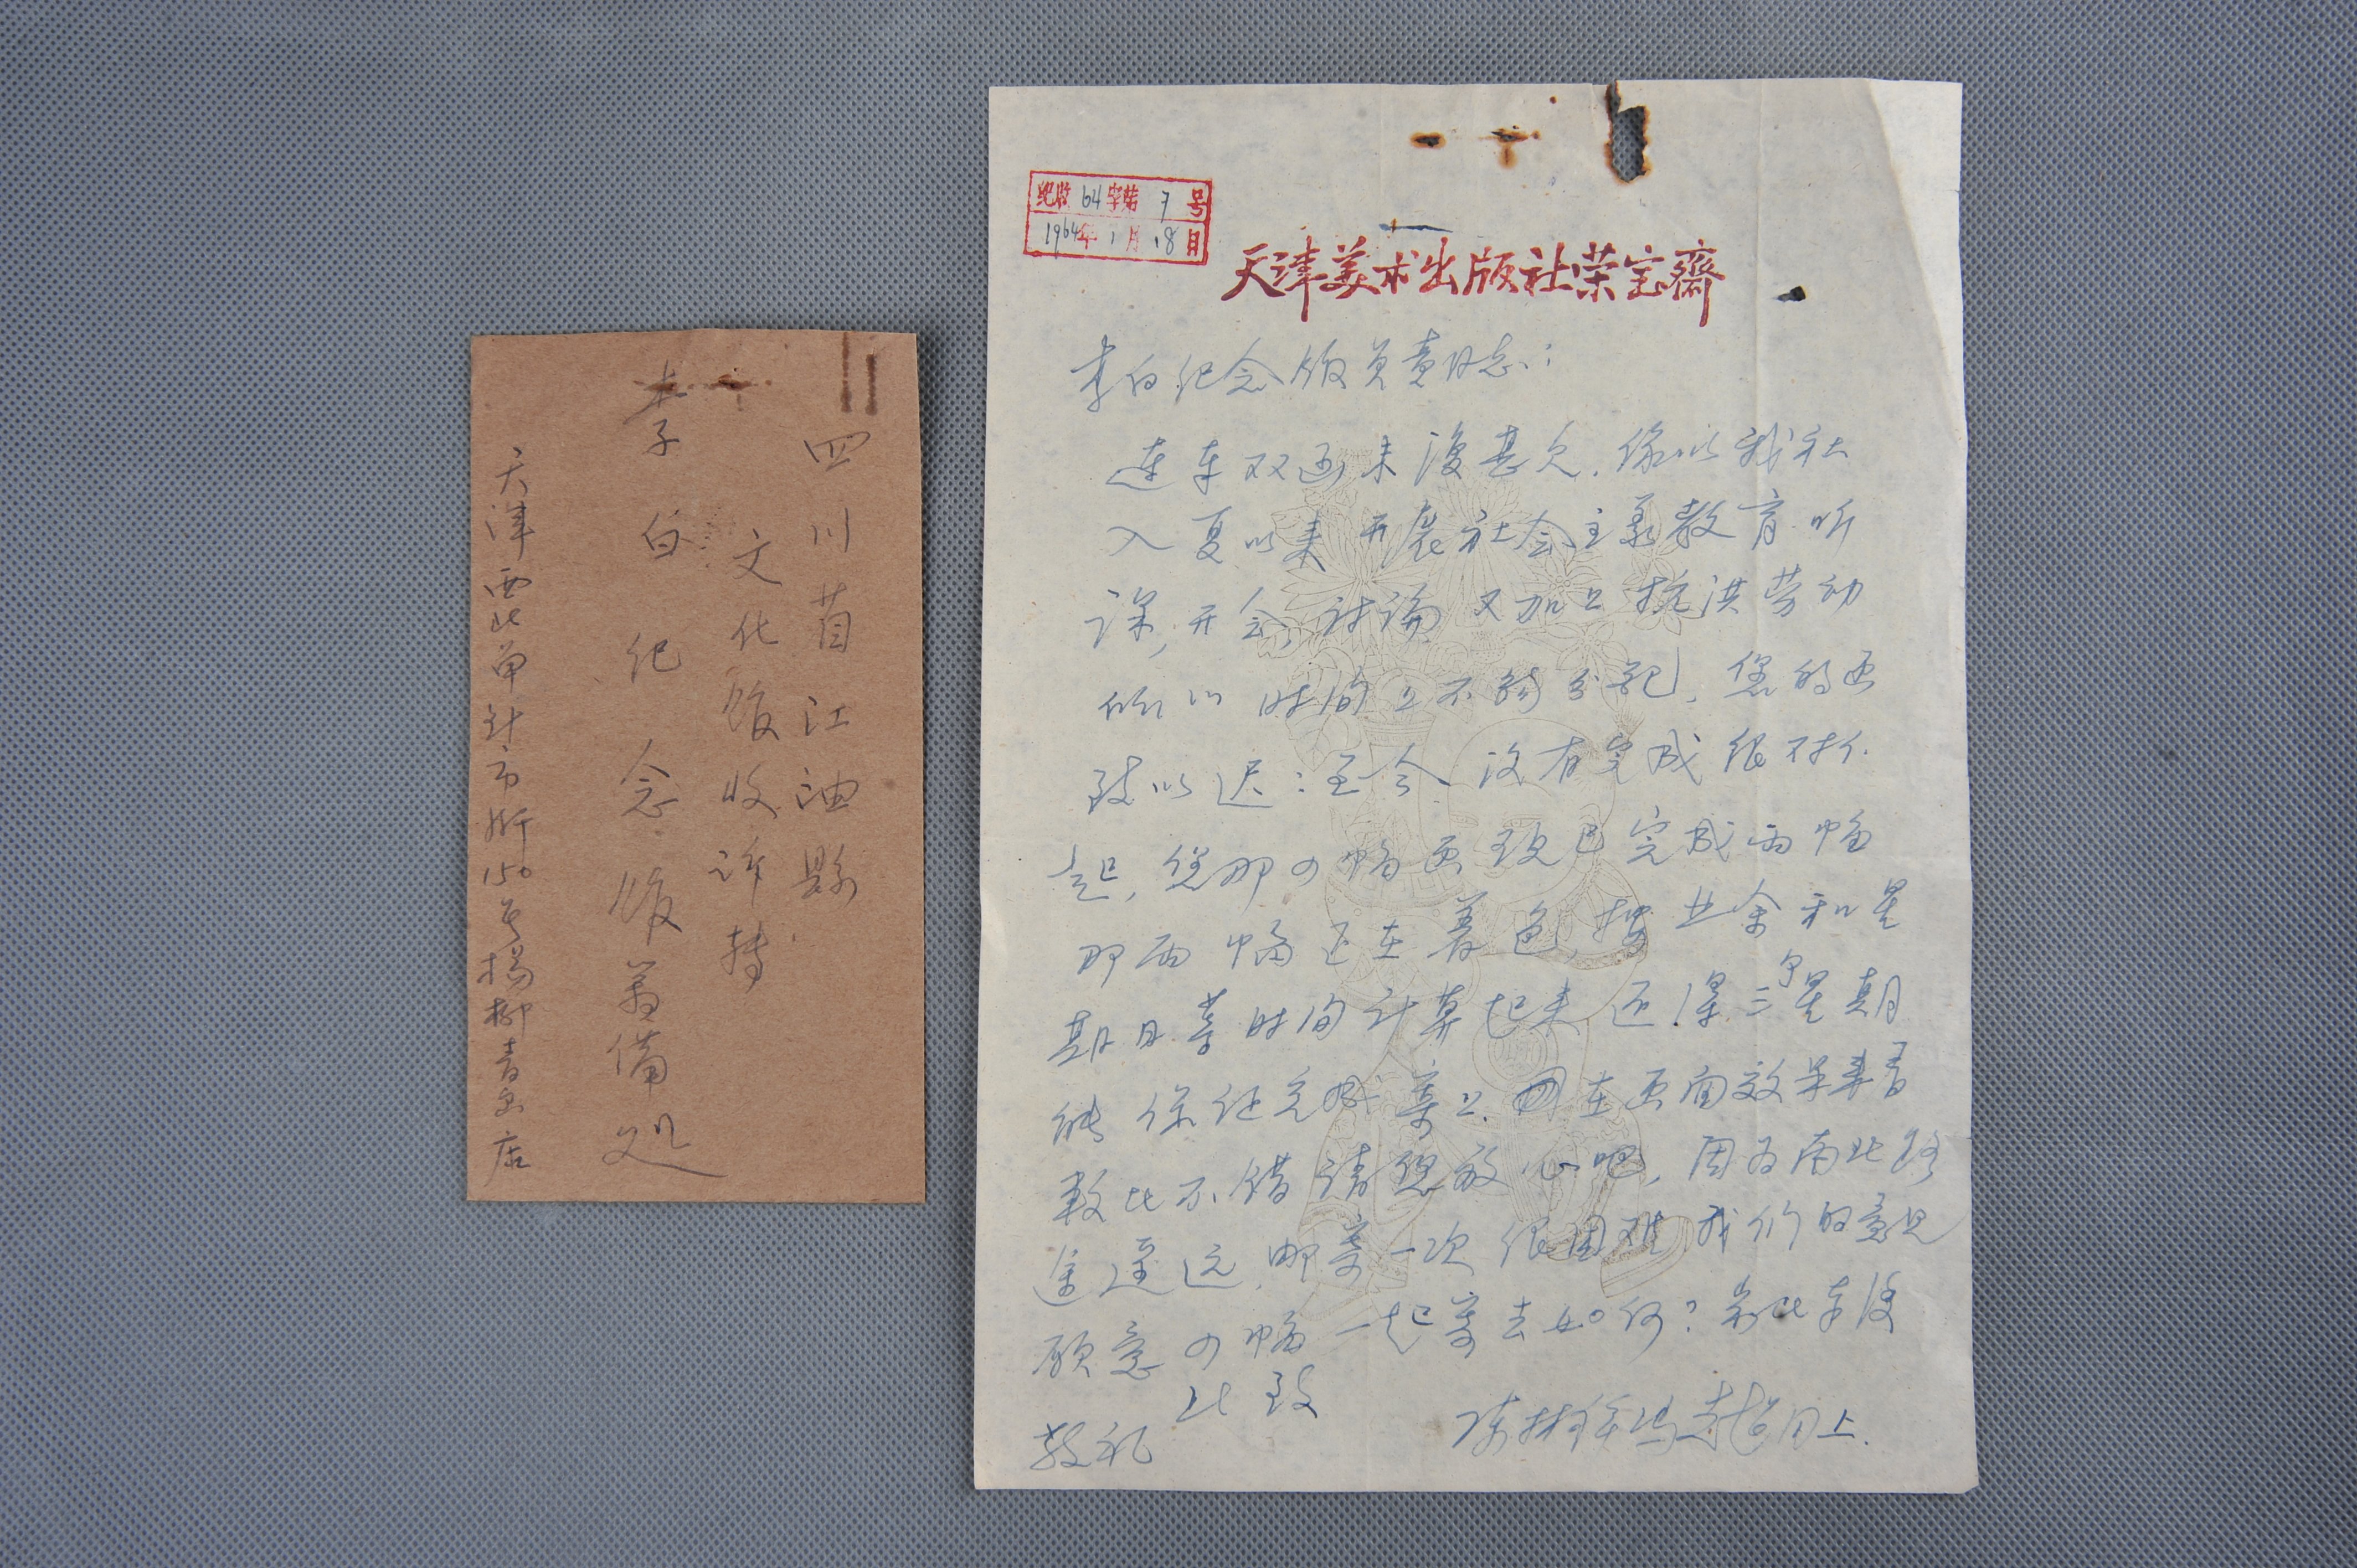 四川省江油縣
文化馆收许转
李白纪念馆筹备处
天津西北角针市街150号杨柳青画店
纪收64字第7号
1964年1月18日
天津美术出版社荣宝齋
李白纪念馆负责同志：
连来双函未復甚欠，你以我社
入夏以来开展社会主義教育听
课，开会，讨论又加上抗洪劳动
所以时间上不能分配，您的画
致以迟：至今没有完成很对不
起，您那四幅画致已完成两幅
那两幅正在着色，按业余和星
期日等时间计算起来还得三个星期
能保证完成寄上，在画面效果来看
較比不错请您放心吧，因为南北路
途遥远，邮寄一次很困难，我们的意见
願意四幅一起寄去如何？
此致
敬礼
同上